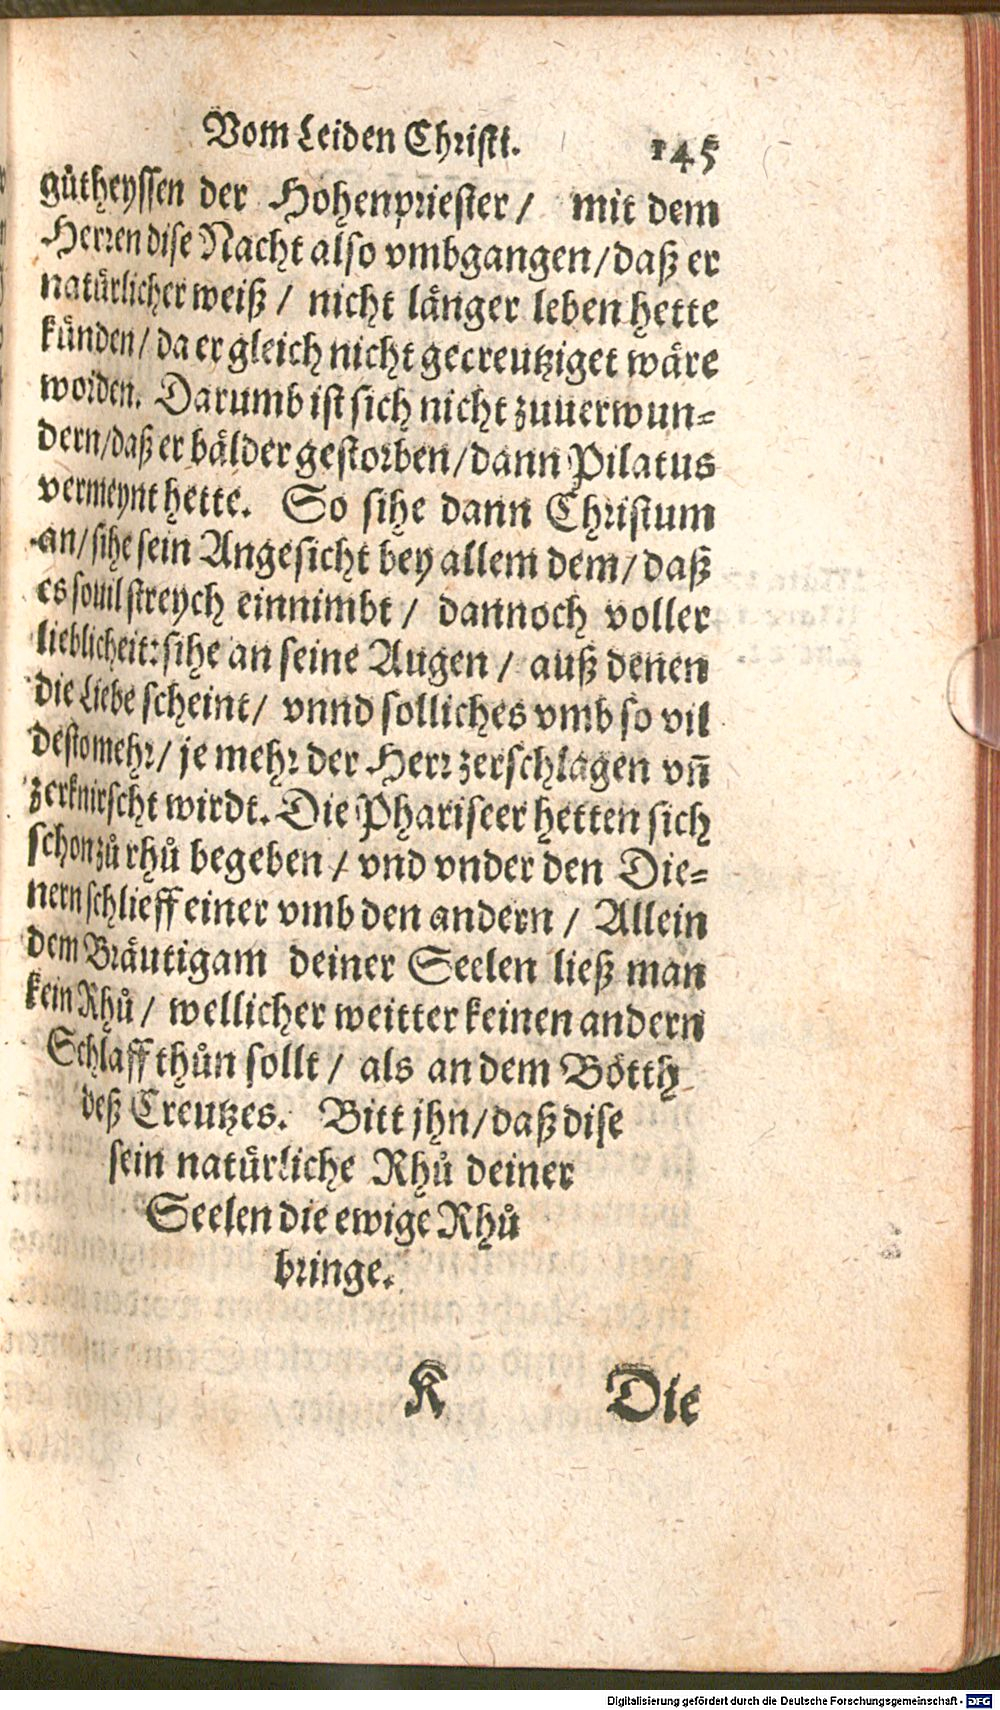 Vom Leiden Christi. 145
gůtheyssen der Hohenpriester / mit dem
Herren dise Nacht also vmbgangen / daß er
natürlicher weiß / nicht länger leben hette
künden / da er gleich nicht gecreutziget wäre
worden. Darumb ist sich nicht zuuerwun⸗
dern / daß er bälder gestorben / dann Pilatus
vermeynt hette. So sihe dann Christum
an / sihe sein Angesicht bey allem dem / daß
es souil streych einnimbt / dannoch voller
lieblicheit: sihe an seine Augen / auß denen
die Liebe scheint / vnnd solliches vmb so vil
destomehr / je mehr der Herr zerschlagen vñ
zerknirscht wirdt. Die Phariseer hetten sich
schon zů rhů begeben / vnd vnder den Die⸗
nern schlieff einer vmb den andern / Allein
dem Bräutigam deiner Seelen ließ man
kein Rhů / wellicher weitter keinen andern
Schlaff thůn sollt / als an dem Bötth
deß Creutzes. Bitt jhn / daß dise
sein natürliche Rhů deiner
Seelen die ewige Rhů
bringe.
K Die
Digitalisierung gefördert durch die Deutsche Forschungsgemeinschaft - DFG